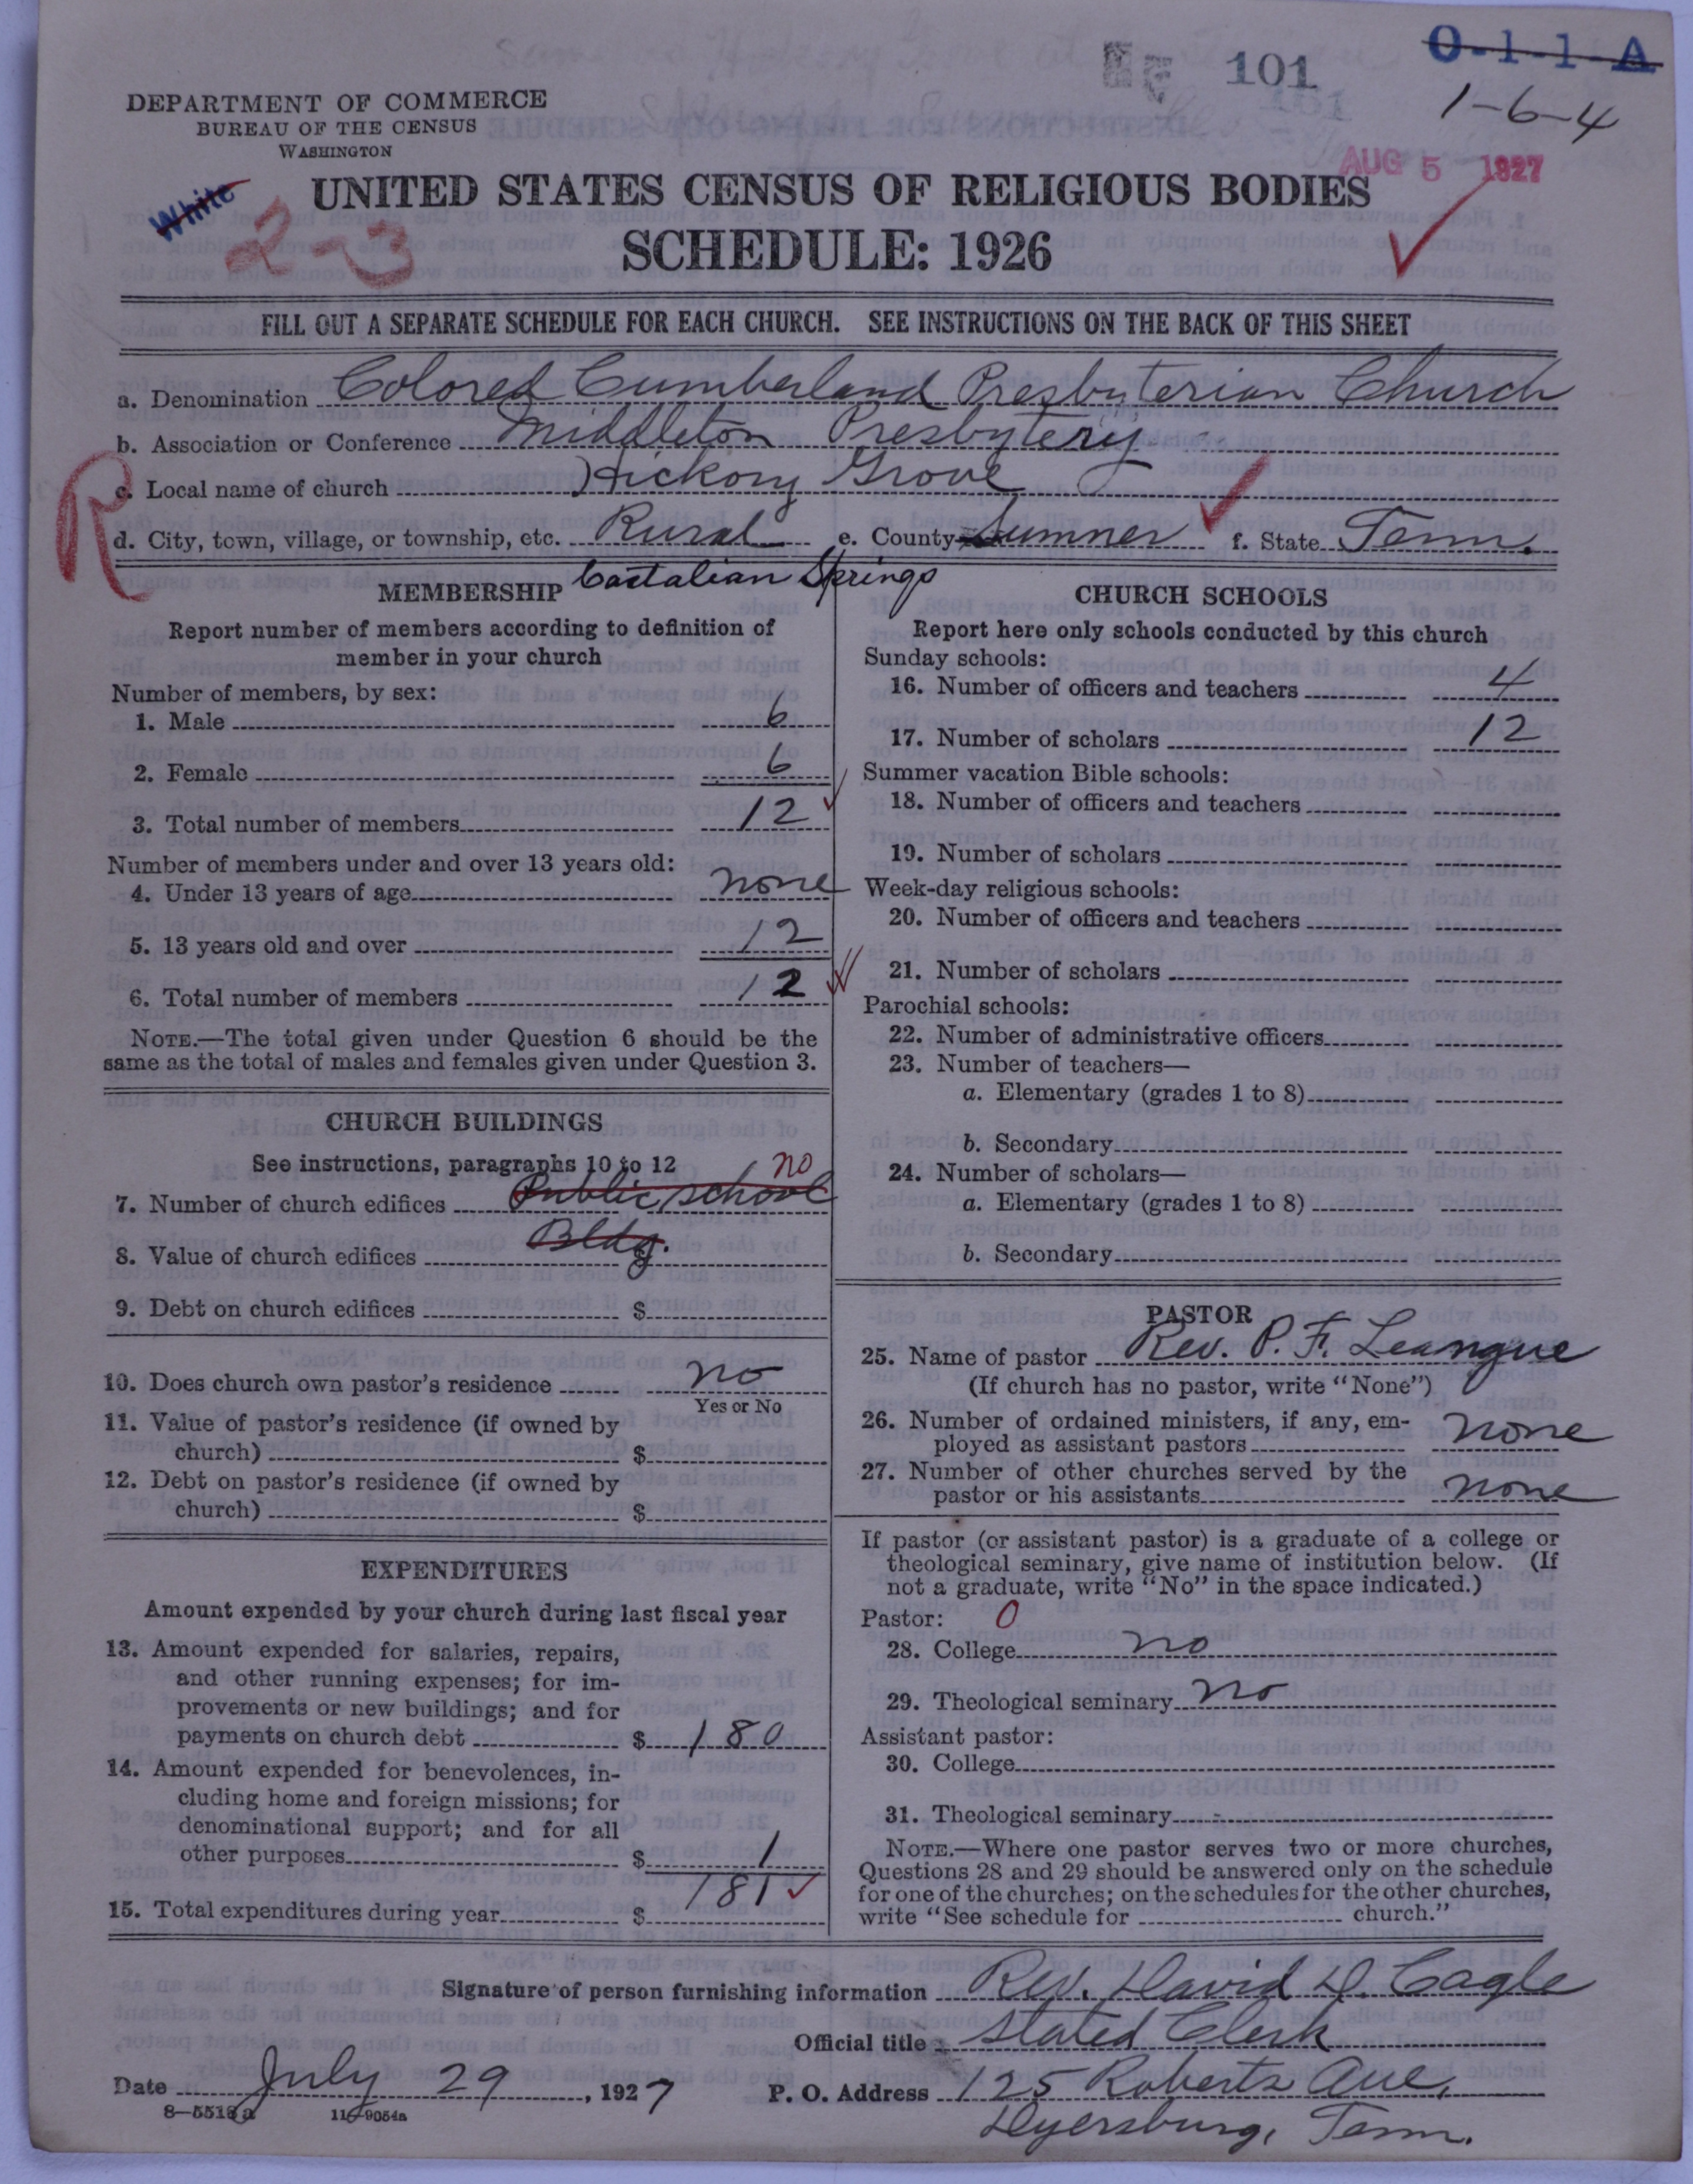 101
O-1-1-A
1-6-4
DEPARTMENT OF COMMERCE
BUREAU OF THE CENSUS
WASHINGTON
AUG 5 1927
White
2-3
UNITED STATES CENSUS OF RELIGIOUS BODIES
SCHEDULE: 1926
FILL OUT A SEPARATE SCHEDULE FOR EACH CHURCH. SEE INSTRUCTIONS ON THE BACK OF THIS SHEET
a. Denomination Colored Cumberland Presbyterian Church
b. Association or Conference Middleton Presbytery
R
c. Local name of church Hickory Grove
d. City, town, village, or township, etc. Rural e. County Sumner f. State Tenn.
Castalian Springs
MEMBERSHIP
Report number of members according to definition of
member in your church
Number of members, by sex:
1. Male 6
2. Female 6
3. Total number of members 12
Number of members under and over 13 years old:
4. Under 13 years of age none
5. 13 years old and over 12
6. Total number of members 12
NOTE.—The total given under Question 6 should be the
same as the total of males and females given under Question 3.
CHURCH BUILDINGS
See instructions, paragraphs 10 to 12
no
7. Number of church edifices Public school
Bldg.
8. Value of church edifices $
9. Debt on church edifices $
10. Does church own pastor's residence no
Yes or No
11. Value of pastor's residence (if owned by
church) $
12. Debt on pastor's residence (if owned by
church) $
EXPENDITURES
Amount expended by your church during last fiscal year
13. Amount expended for salaries, repairs,
and other running expenses; for im-
provements or new buildings; and for
payments on church debt $ 180
14. Amount expended for benevolences, in-
cluding home and foreign missions; for
denominational support; and for all
other purposes $ 1
15. Total expenditures during year $ 181
CHURCH SCHOOLS
Report here only schools conducted by this church
Sunday schools:
16. Number of officers and teachers 4
17. Number of scholars 12
Summer vacation Bible schools:
18. Number of officers and teachers
19. Number of scholars
Week-day religious schools:
20. Number of officers and teachers
21. Number of scholars
Parochial schools:
22. Number of administrative officers
23. Number of teachers—
a. Elementary (grades 1 to 8)
b. Secondary
24. Number of scholars—
a. Elementary (grades 1 to 8)
b. Secondary
PASTOR
25. Name of pastor Rev. P. F. Leangue
(If church has no pastor, write "None")
26. Number of ordained ministers, if any, em-
ployed as assistant pastors none
27. Number of other churches served by the
pastor or his assistants none
If pastor (or assistant pastor) is a graduate of a college or
theological seminary, give name of institution below. (If
not a graduate, write "No" in the space indicated.)
Pastor: 0
28. College no
29. Theological seminary no
Assistant pastor:
30. College
31. Theological seminary
NOTE.—Where one pastor serves two or more churches,
Questions 28 and 29 should be answered only on the schedule
for one of the churches; on the schedules for the other churches,
write "See schedule for church."
Signature of person furnishing information Rev. David D. Cagle
Official title Stated Clerk
Date July 29, 1927 P. O. Address 125 Roberts Ave,
8-5518a 11-9054a
Dyersburg, Tenn.